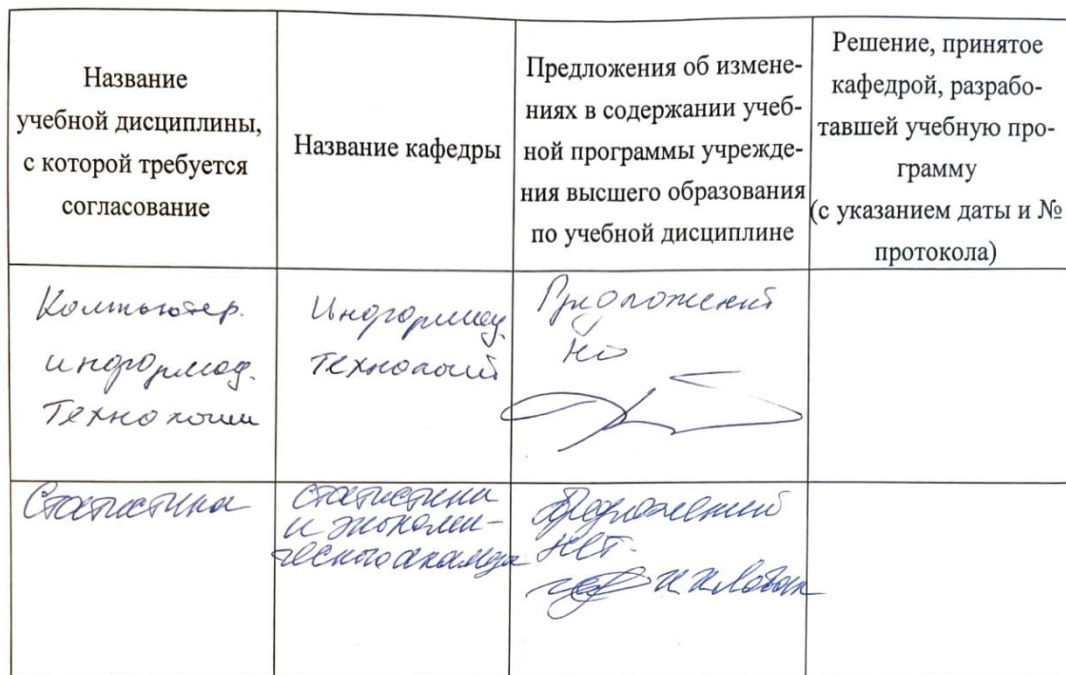 Название
учебной дисциплины,
с которой требуется
согласование
Название кафедры
Предложения об измене-
ниях в содержании учеб-
ной программы учрежде-
ния высшего образования
по учебной дисциплине
Решение, принятое
кафедрой, разрабо-
тавшей учебную про-
грамму
(с указанием даты и №
протокола)
Компьютер.
информац.
Технологии
Информац.
технологий
Предложений
Статистика
статистики
и экономи-
ческого анализа
Предложений
нет.